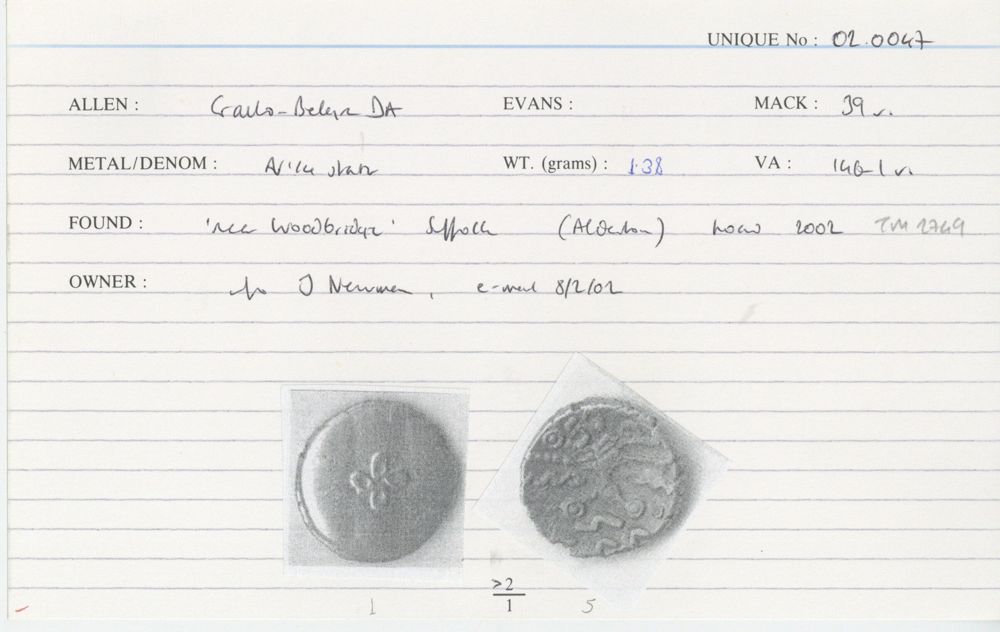 UNIQUE No : 02.0047
ALLEN : Gallo-Belgic DA EVANS : MACK : 39 v.
METAL/DENOM : AV 1/4 stater WT. (grams) : 1.38 VA : 146-1 v.
FOUND : 'near Woodbridge' Suffolk (Alderton) 2002 TM 2749
OWNER : J Newman, e-mail 8/2/02
>2
1 1 5